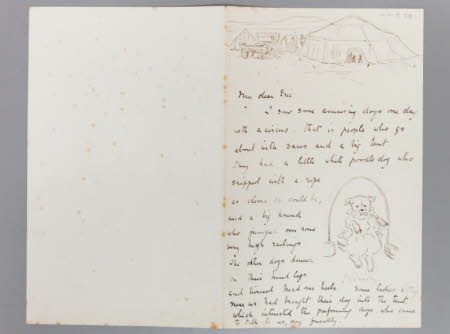 My dear Eric
I saw some amusing dogs one day
with a circus. that is people who go
about with vans and a big tent
They had a little white poodle dog who
skipped with a rope
as clever as could be,
and a big hound
who jumped over some
very high railings
The other dogs danced
on their hind legs
and turned head over heels. Some ladies
near us had brought their dog into the tent
which interested the performing dogs who came
to talk to us very friendly